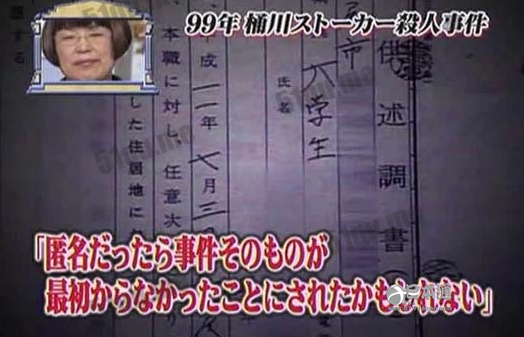 99年 桶川ストーカー殺人事件
供述調書
市
大学生
氏名
平成一一年七月三
本職に対し、任意次
した住居地に
する
「匿名だったら事件そのものが
最初からなかったことにされたかもしれない」
日本通